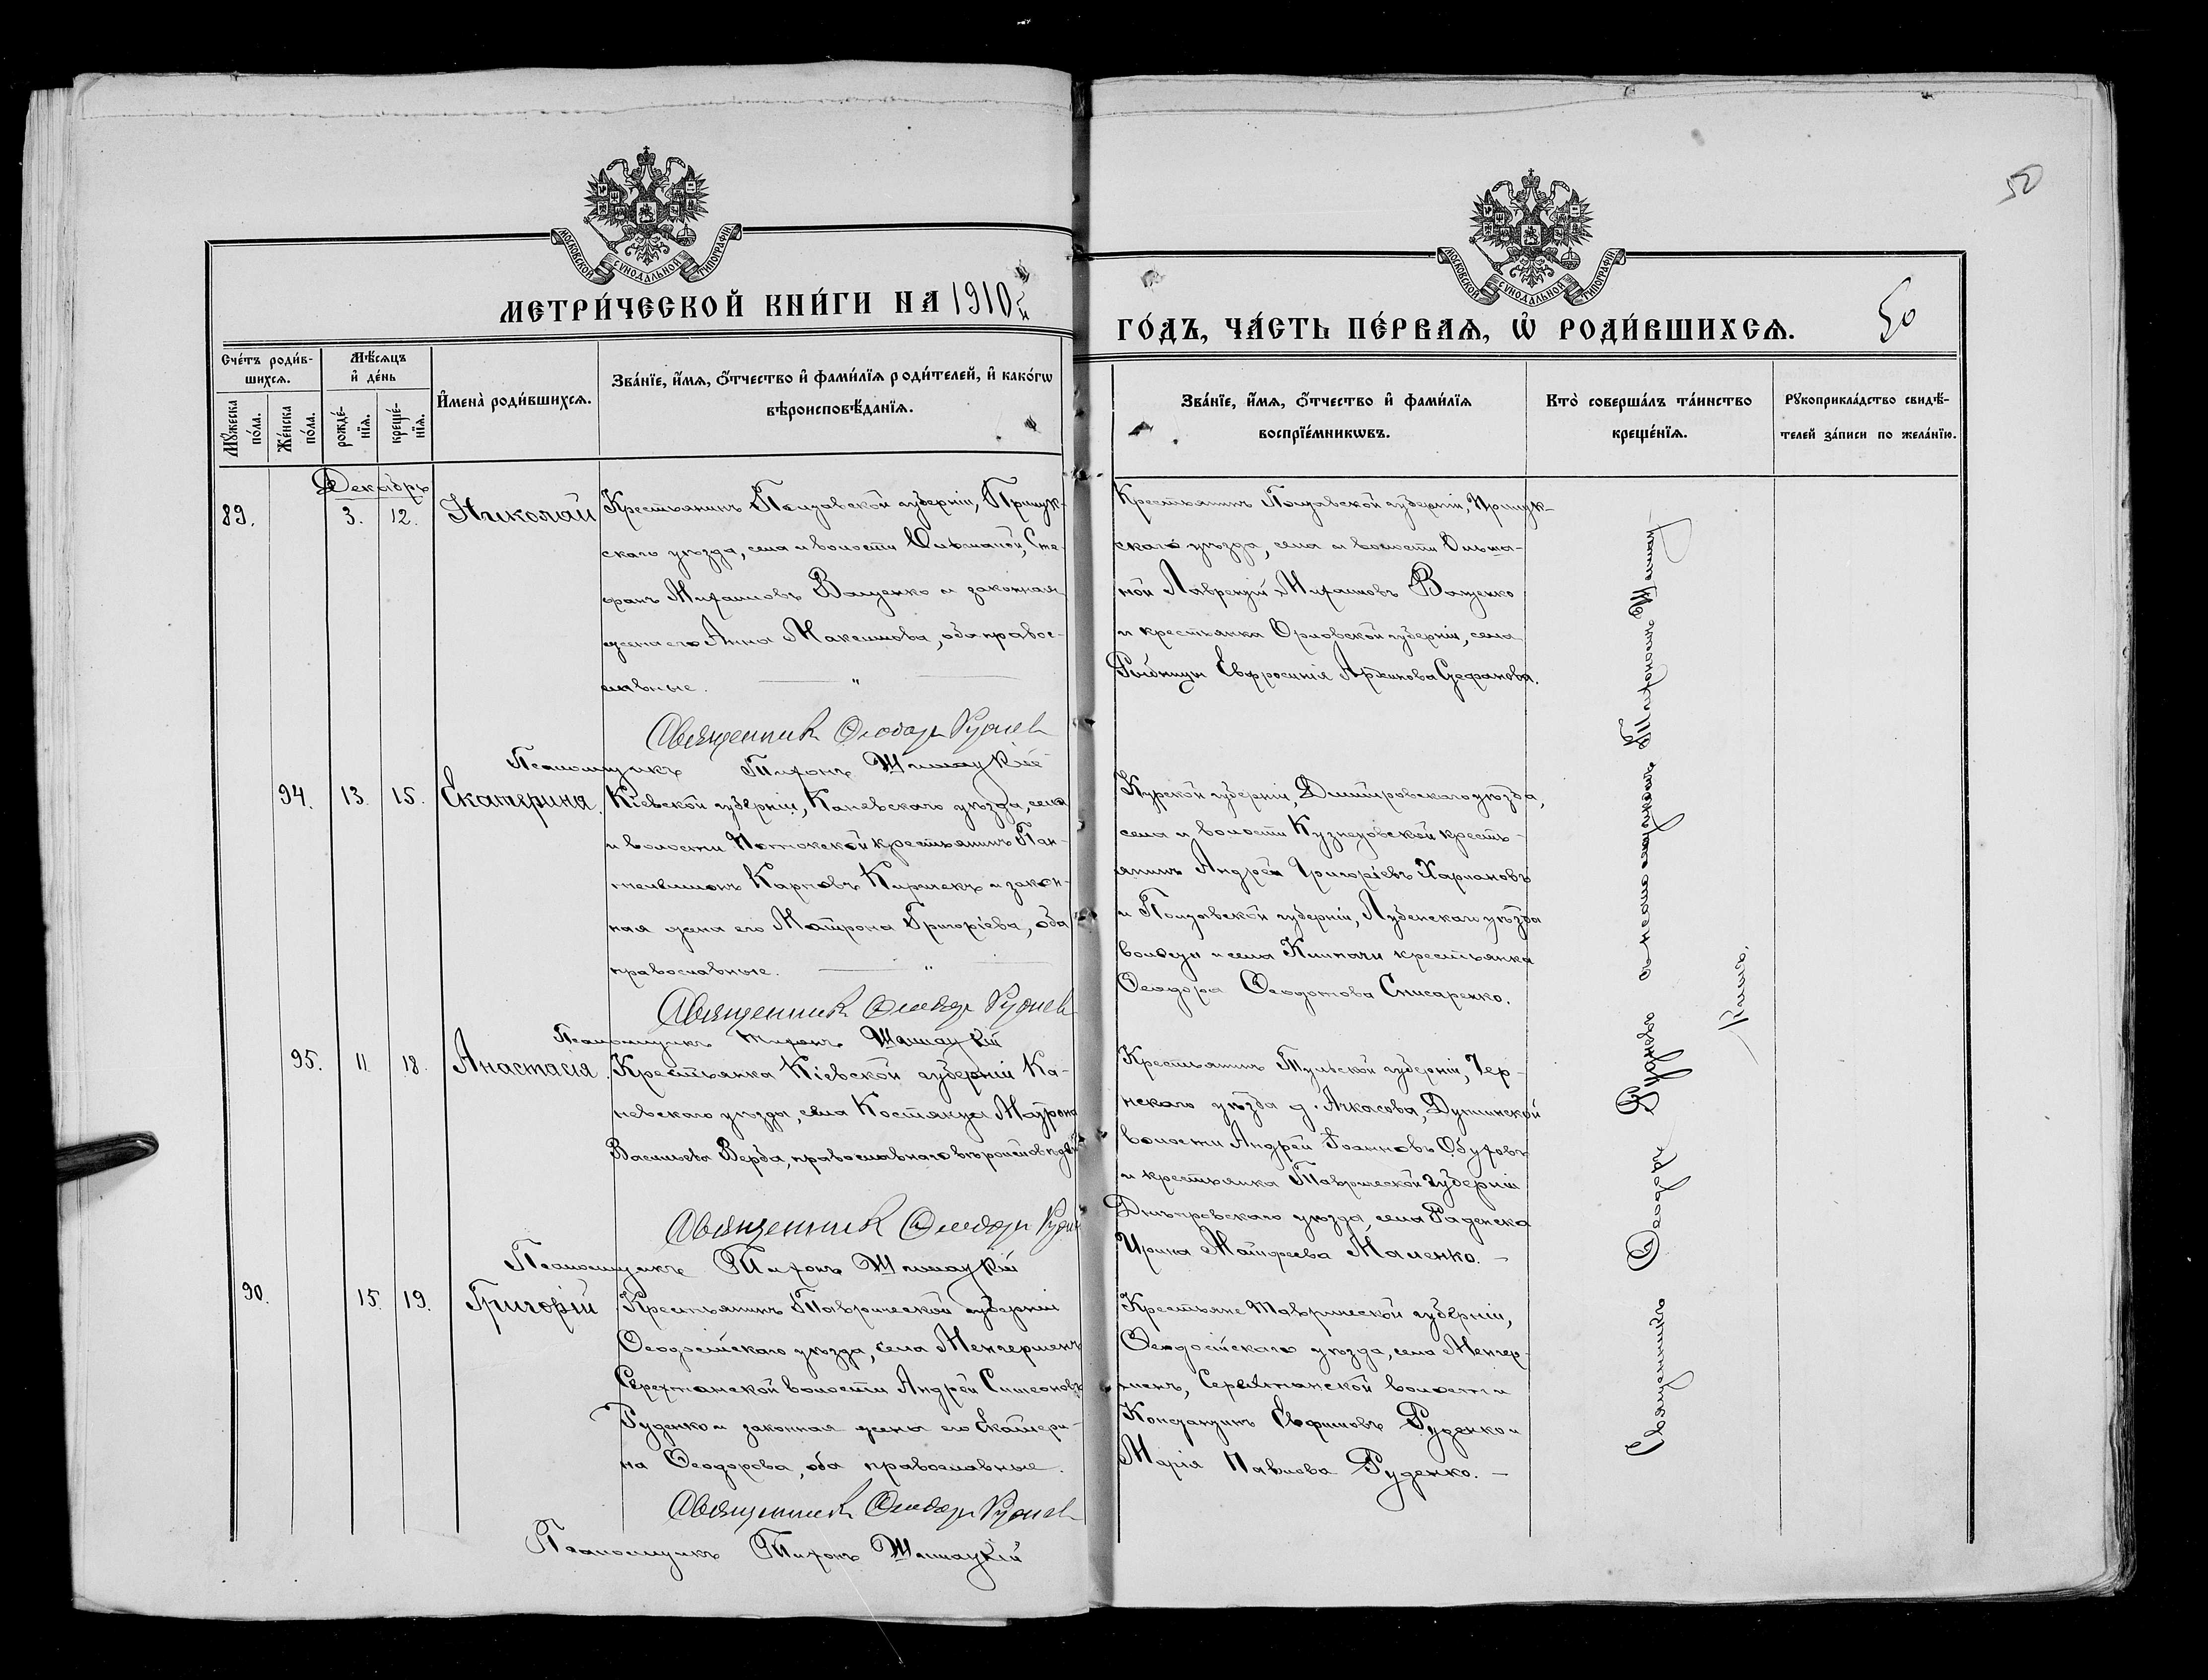 50
МОСКОВСКОЙ СѴНОДАЛЬНОЙ ТИПОГРАФІИ
МОСКОВСКОЙ СѴНОДАЛЬНОЙ ТИПОГРАФІИ
МЕТРИ́ЧЕСКОЙ КНИ́ГИ НА 1910й
ГО́ДЪ, ЧА́СТЬ ПЕ́РВАѦ, Ѡ҆ РОДИ́ВШИХСѦ.
50
Сче́тъ роди́в-
шихсѧ.
Мѣ́сѧцъ
и҆ де́нь
Мꙋ́жеска
по́ла.
Же́нска
по́ла.
рожде́-
нїѧ.
креще́-
нїѧ.
И҆мена̀ роди́вшихсѧ.
Зва́нїе, и҆́мѧ, ѻ҆́тчество и҆ фами́лїѧ роди́телей, и҆ како́гѡ
вѣроисповѣ́данїѧ.
Зва́нїе, и҆́мѧ, ѻ҆́тчество и҆ фами́лїѧ
воспрїе́мникѡвъ.
Кто̀ соверша́лъ та́инство
креще́нїѧ.
Рꙋкоприкла́дство свидѣ́-
телей за́писи по жела́нїю.
Декабрь
89.
3.
12.
Николай
Крестьянинъ Полтавской губерніи, Прилук-
скаго уѣзда, села и волости Ольшаной, Сте-
фанъ Михаиловъ Ващенко и законная
жена его Анна Максимова, оба правос-
лавные.
Священникъ Ѳеодоръ Рудневъ
Псаломщикъ Тихонъ Шимацкій
Крестьянинъ Полтавской губерніи, Прилук-
скаго уѣзда, села и волости Ольша-
ной Лаврентій Михаиловъ Ващенко
и крестьянка Орловской губерніи, села
Рыбницы Евфросинія Архипова Стефанова.
94.
13.
15.
Екатерина.
Кіевской губерніи, Каневскаго уѣзда, села
и волости Потокской крестьянинъ Пан-
телеимонъ Карповъ Киричекъ и закон-
ная жена его Матрона Григоріева, оба
православные.
Священникъ Ѳеодоръ Рудневъ
Псаломщикъ Тихонъ Шимацкій
Курской губерніи, Дмитровскаго уѣзда,
села и волости Кузнецовской кресть-
янинъ Андрей Григоріевъ Харлановъ
и Полтавской губерніи, Лубенскаго уѣзда
волости и села крестьянка
Ѳеодора Ѳеодотова Слисаренко.
95.
11
18.
Анастасія.
Крестьянка Кіевской губерніи Ка-
невскаго уѣзда, села Костянца Матрона
Васильева Верба, православнаго вѣроисповѣданія
Священникъ Ѳеодоръ Рудневъ
Псаломщикъ Тихонъ Шимацкій
Крестьянинъ Тульской губерніи, Чер-
нскаго уѣзда д. Ачкасова, Дупенской
волости Андрей Іоанновъ Обуховъ
и крестьянка Таврической губерніи
Днѣпровскаго уѣзда, села Раденска
Ирина Матѳеева Маленко.
90.
15.
19.
Григорій
Крестьянинъ Таврической губерніи
Ѳеодосійскаго уѣзда, села Менгерменъ
волости Андрей Симеоновъ
Руденко и законная жена его Екатери-
на Ѳеодорова, оба православные.
Священникъ Ѳеодоръ Рудневъ
Псаломщикъ Тихонъ Шимацкій
Крестьяне Таврической губерніи,
Ѳеодосійскаго уѣзда, села Менгер-
менъ, волости
Константинъ Евфимовъ Руденко и
Марія Павлова Руденко.
Священникъ Ѳеодоръ Рудневъ съ псаломщикомъ Тихономъ Шимац-
кимъ.